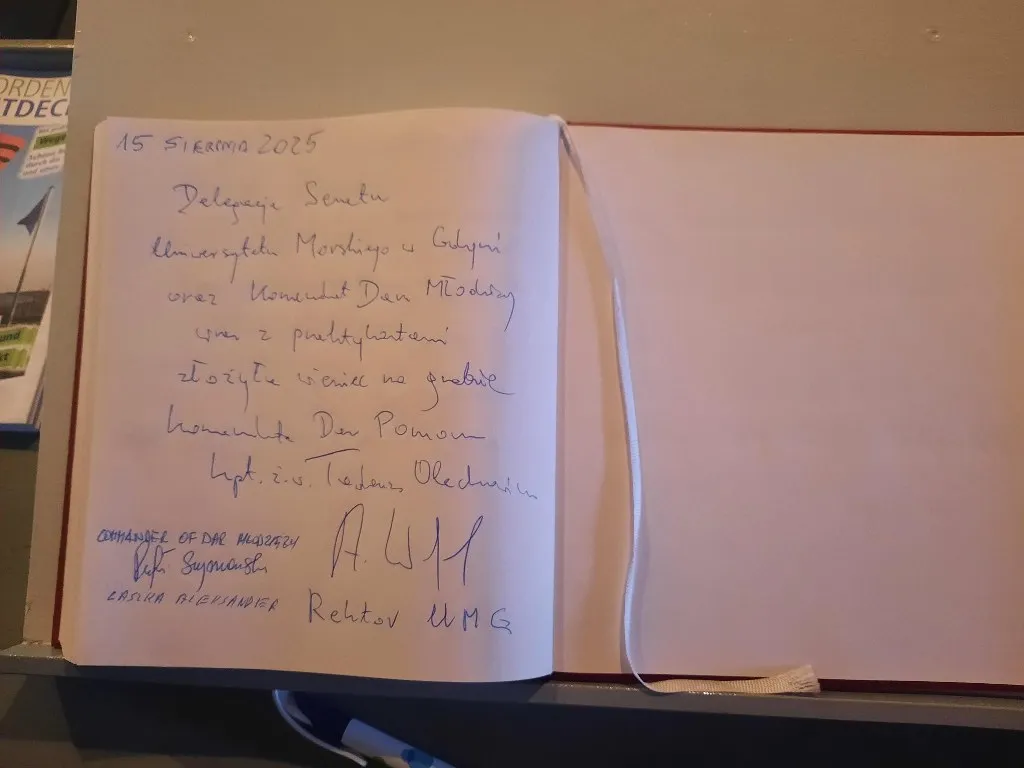 ORDEN
TDECK
15 SIERPNIA 2025
Delegacja Senatu
Uniwersytetu Morskiego w Gdyni
oraz Komendant Daru Młodzieży
wraz z praktykantami
złożyła wieniec na grobie
Komendanta Daru Pomorza
kpt. ż.w. Tadeusza Olechnowicza
COMMANDER OF DAR MŁODZIEŻY
Rektor UMG
ALEKSANDER